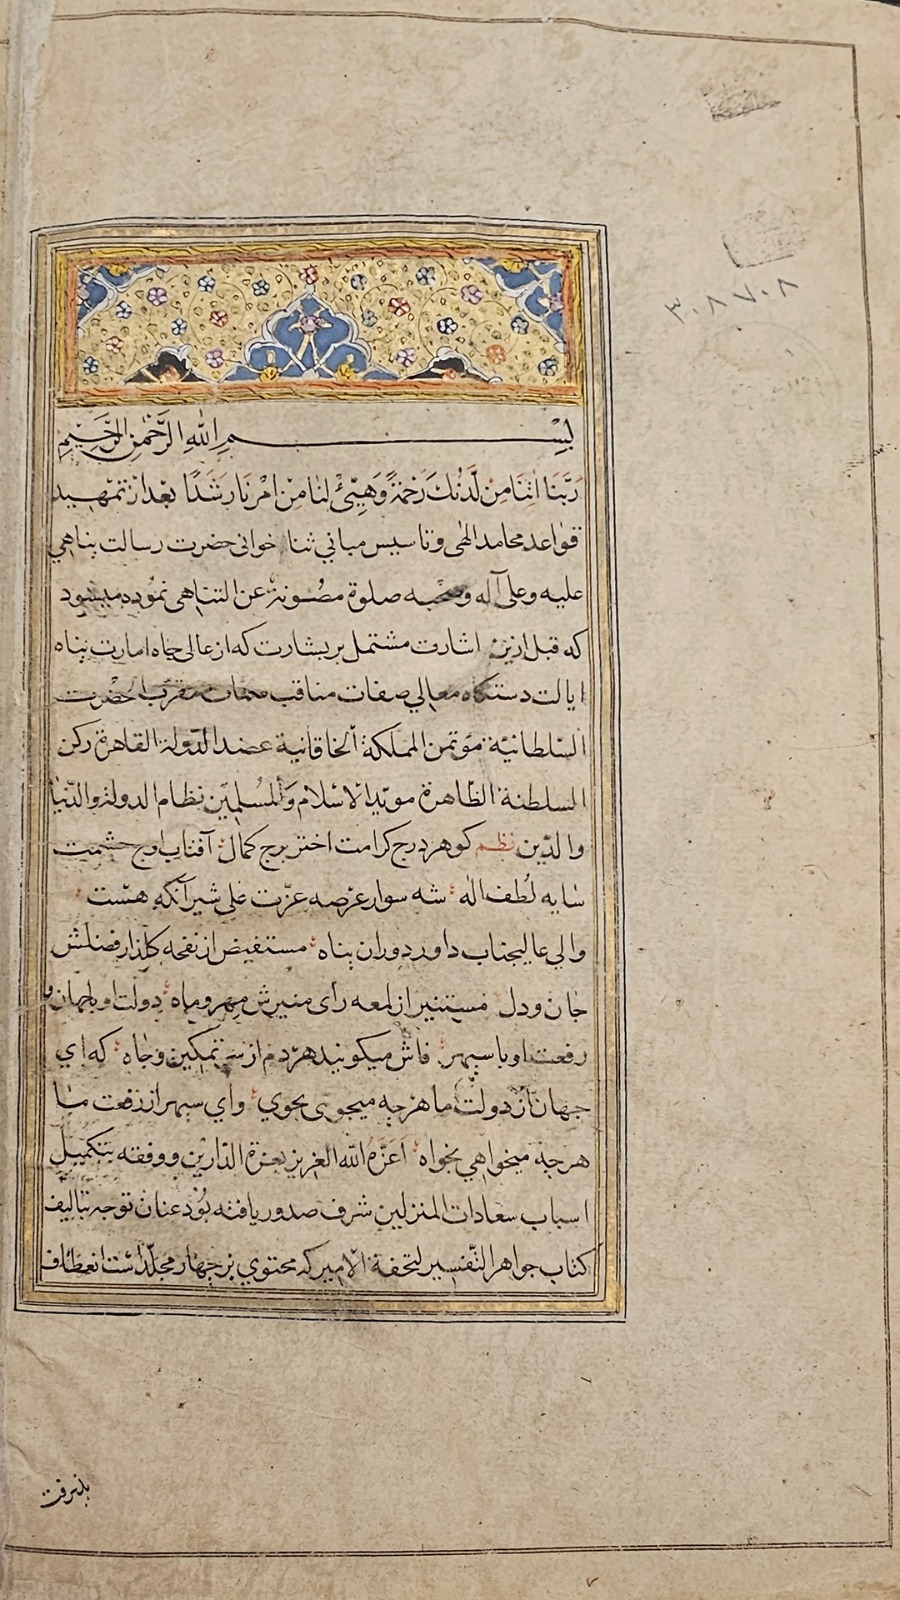 ۳۰۸۷۰۸
بسم الله الرحمن الرحیم
رَبَّنَا اٰتِنَا مِنْ لَّدُنْكَ رَحْمَةً وَهَيِّئْ لَنَا مِنْ اَمْرِنَا رَشَدًا بعد از تمهید
قواعد محامد الهی و تاسیس مبانی ثنا خوانی حضرت رسالت پناهی
علیه و علی آله و صحبه صلوة مصونة عن التناهی نموده میشود
که قبل ازین اشارت مشتمل بر بشارت که از عالی جاه امارت پناه
ایالت دستکاه معالی صفات مناقب مقرب الحضرت
السلطانیة موتمن المملکة الخاقانیة عضد الدولة القاهرة رکن
السلطنة الظاهرة موید الاسلام والمسلمین نظام الدولة والدنیا
والدین نظم کوهر درج کرامت اختر برج کمال آفتاب اوج حشمت
سایه لطف اله شه سوار عرصه عزت علی شیر آنکه هست
والی عالیجناب داور دوران پناه مستفیض از نفحه کلزار فضلش
جان و دل مستنیر از لمعه رای منیرش مهر و ماه دولت او با جهان و
رفعت او با سپهر فاش میکوئید هر دم از سر تمکین و جاه که ای
جهان از دولت ما هرچه میجوئی بجوی وای سپهر از رفعت ما
هرچه میخواهی بخواه اعزه الله العزیز بعزة الدارین و وفقه بتکمیل
اسباب سعادات المنزلین شرف صدور یافته بود عنان توجه بتالیف
کتاب جواهر التفسیر لتحفة الامیر که محتوی بر چهار مجلد است انعطاف
پذیرفت